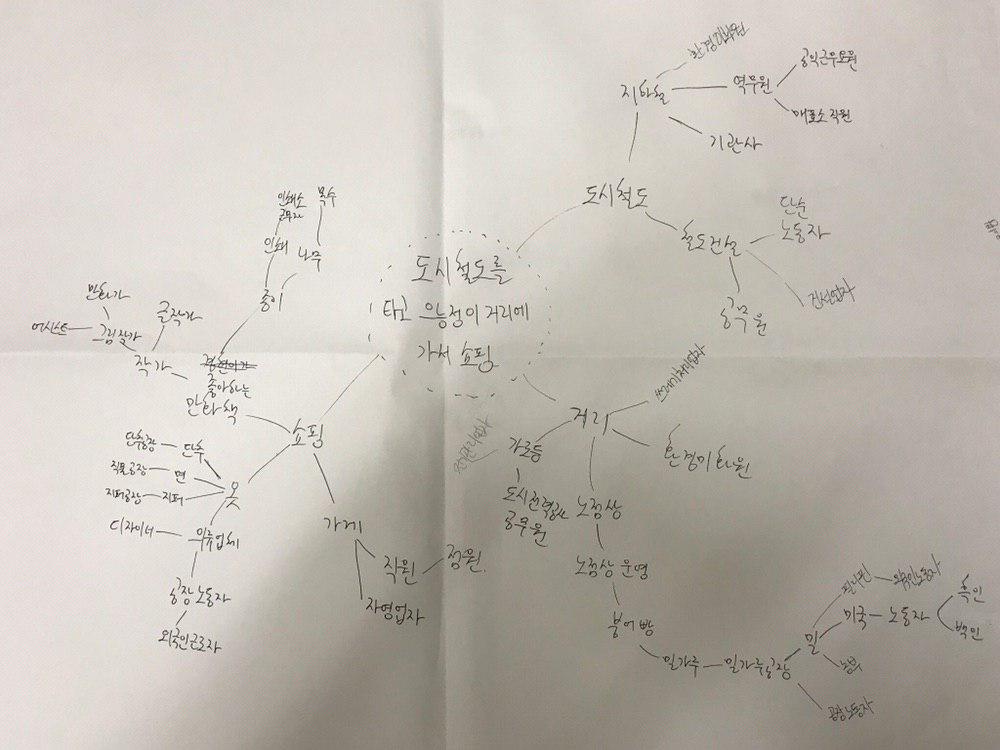 도시철도를
타고 으능정이 거리에
가서 쇼핑
도시철도
지하철
환경미화원
역무원
공익근무요원
매표소 직원
기관사
철도건설
단순
노동자
전선업자
공무원
거리
쓰레기처리업자
환경미화원
가로등
도시전력공사
공무원
노점상
노점상 운영
붕어빵
밀가루
밀가루공장
밀
필리핀
외국인노동자
미국
노동자
흑인
백인
농부
공장노동자
쇼핑
가게
직원
점원.
자영업자
옷
단추
단추공장
면
직물공장
지퍼
지퍼공장
의류업체
디자이너
공장 노동자
외국인근로자
좋아하는
만화책
작가
글작가
그림작가
만화가
어시스트
종이
인쇄
인쇄소
근무자
나무
목수